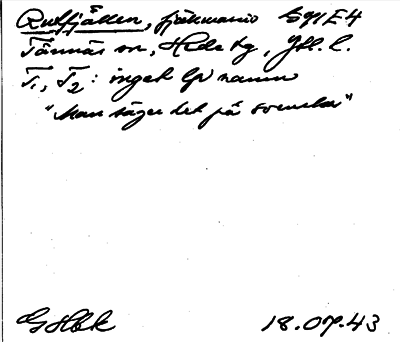 Rutfjällen, fjällmassiv Sgr E4
Tännäs sn, Hede tg, Jtl. l.
T1, T2: inget lp namn
"Man säger det på svenska"
GHbk 18.07.43